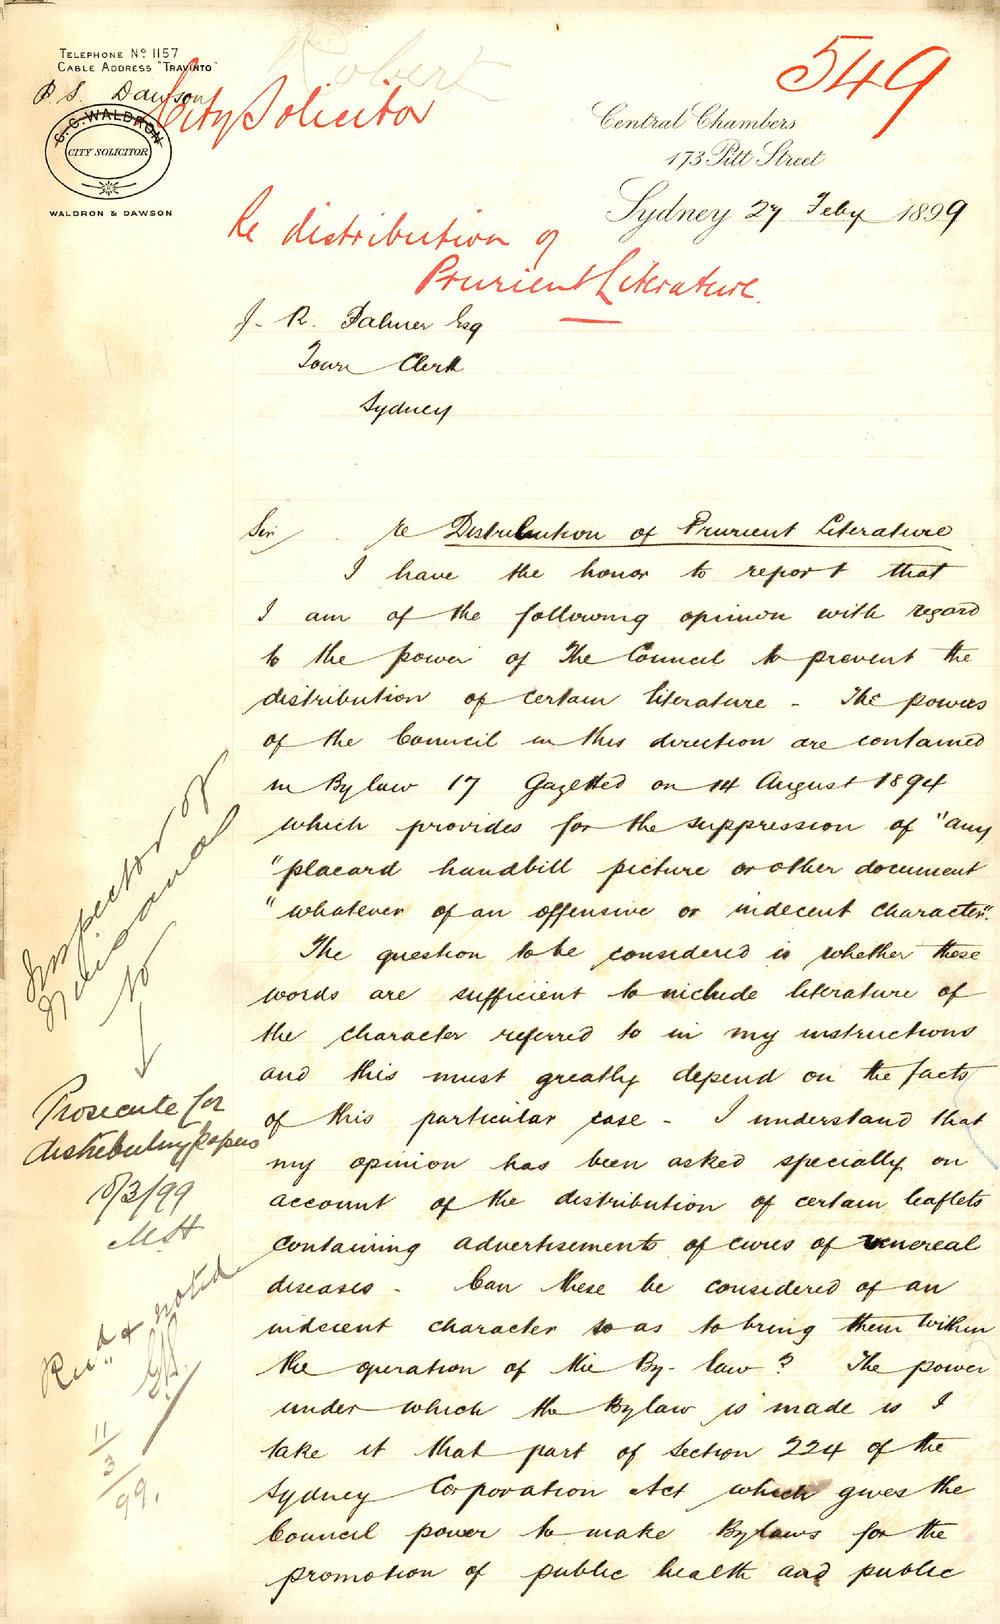 Telephone No. 1157
Cable Address "Travinto"
P. S. Dawson
C. C. WALDRON
CITY SOLICITOR
WALDRON & DAWSON
Robert
City Solicitor
549
Central Chambers
173 Pitt Street
Sydney 27 Feby 1899
Re distribution of
Prurient Literature.
J. R. Palmer Esq
Town Clerk
Sydney
Sir re Distribution of Prurient Literature
I have the honor to report that
I am of the following opinion with regard
to the power of The Council to prevent the
distribution of certain literature - The powers
of the Council in this direction are contained
in By law 17 Gazetted on 14 August 1894
which provides for the suppression of "any
"placard handbill picture or other document
"whatever of an offensive or indecent character".
The question to be considered is whether these
words are sufficient to include literature of
the character referred to in my instructions
and this must greatly depend on the facts
of this particular case - I understand that
my opinion has been asked specially on
account of the distribution of certain leaflets
containing advertisements of cures of venereal
diseases - Can these be considered of an
indecent character so as to bring them within
the operation of the By-law? The power
under which the Bylaw is made is I
take it that part of Section 224 of the
Sydney Corporation Act which gives the
Council power to make Bylaws for the
promotion of public health and public
Inspector of
Nuisances
to
Prosecute for
distributing papers
10/3/99
Recd & noted
11/3/99.